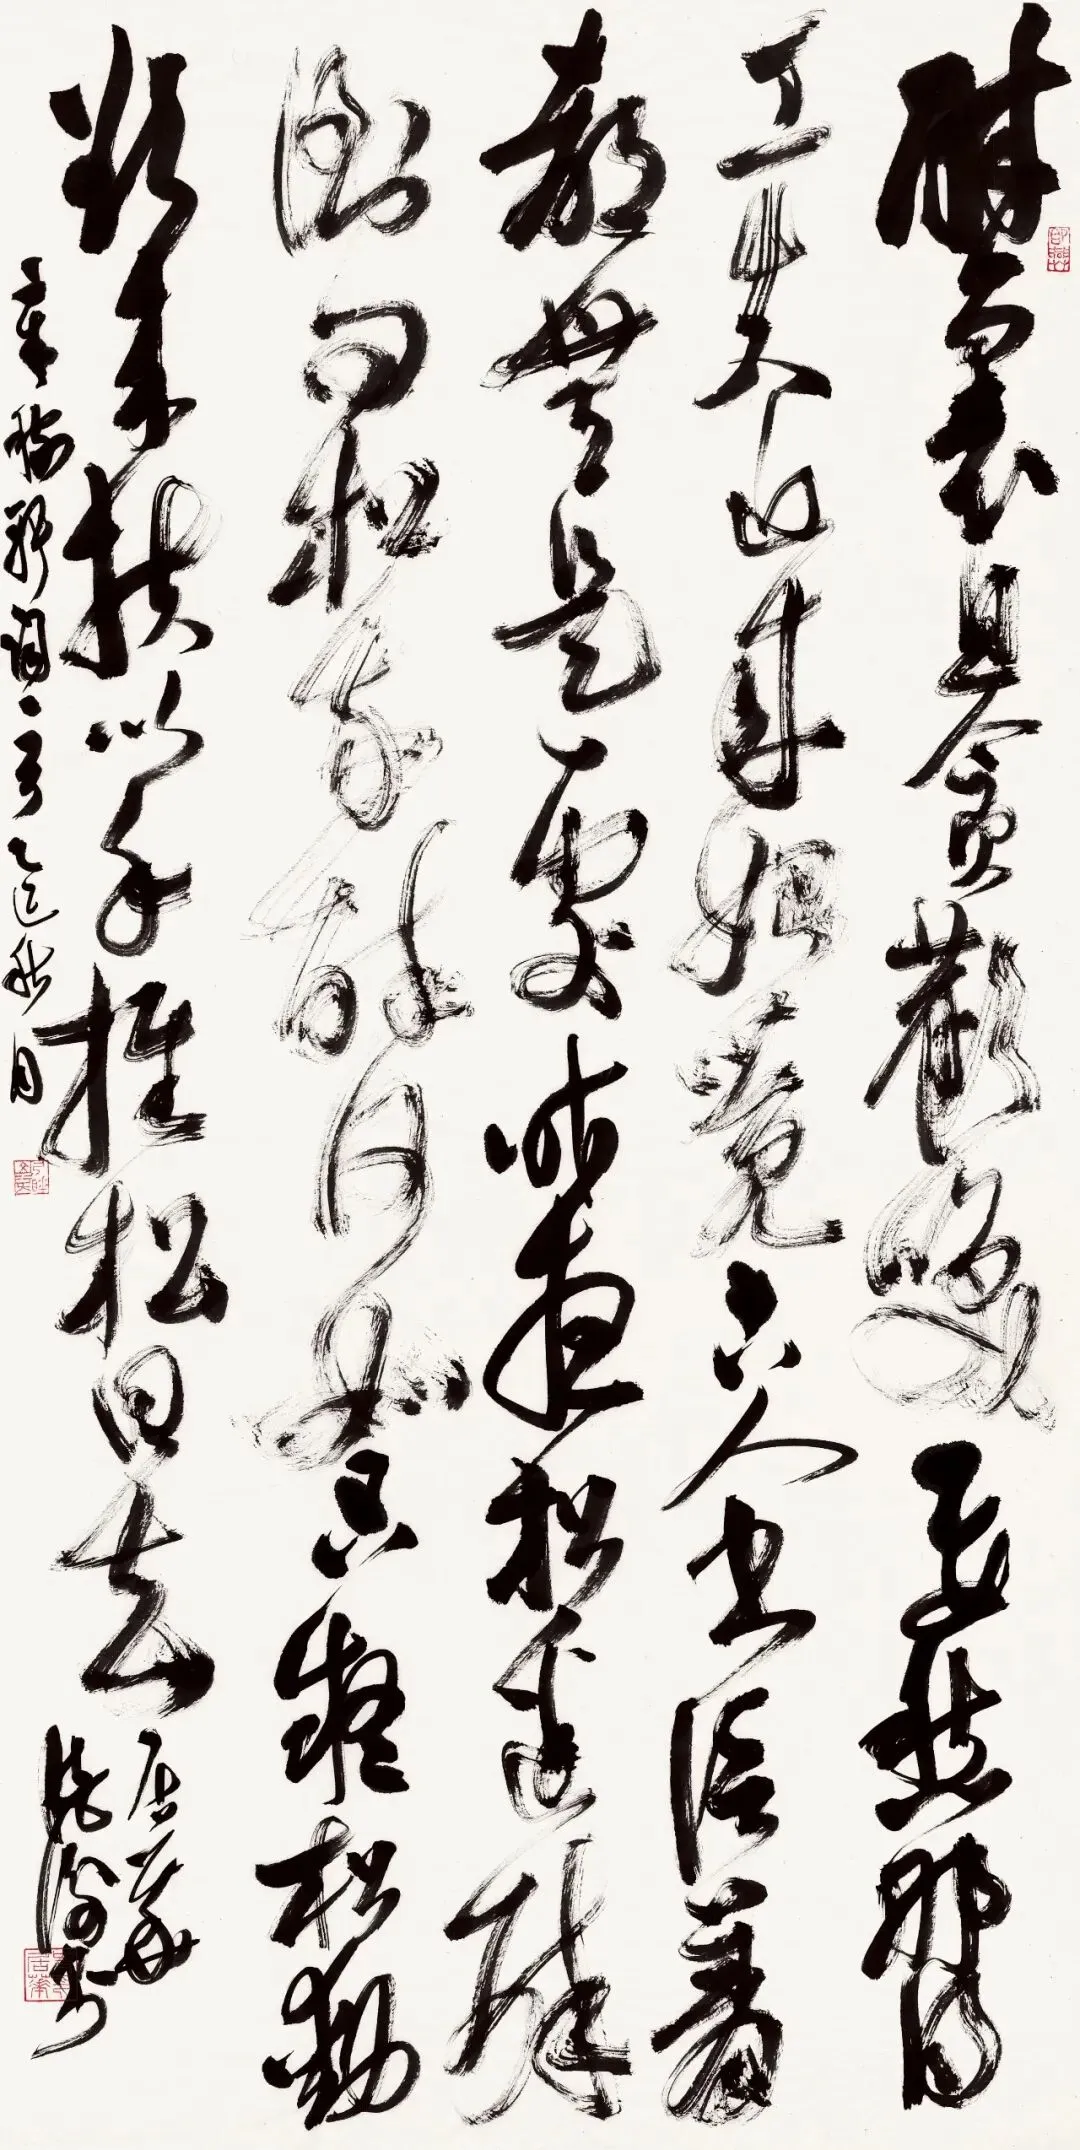 醉里且贪欢笑要愁那得
工夫近来始觉古人书信著
都无是处昨夜松边醉
倒问松我醉何如只疑松动
欲来扶以手推松曰去
辛稼轩词一首乙巳秋月
居華